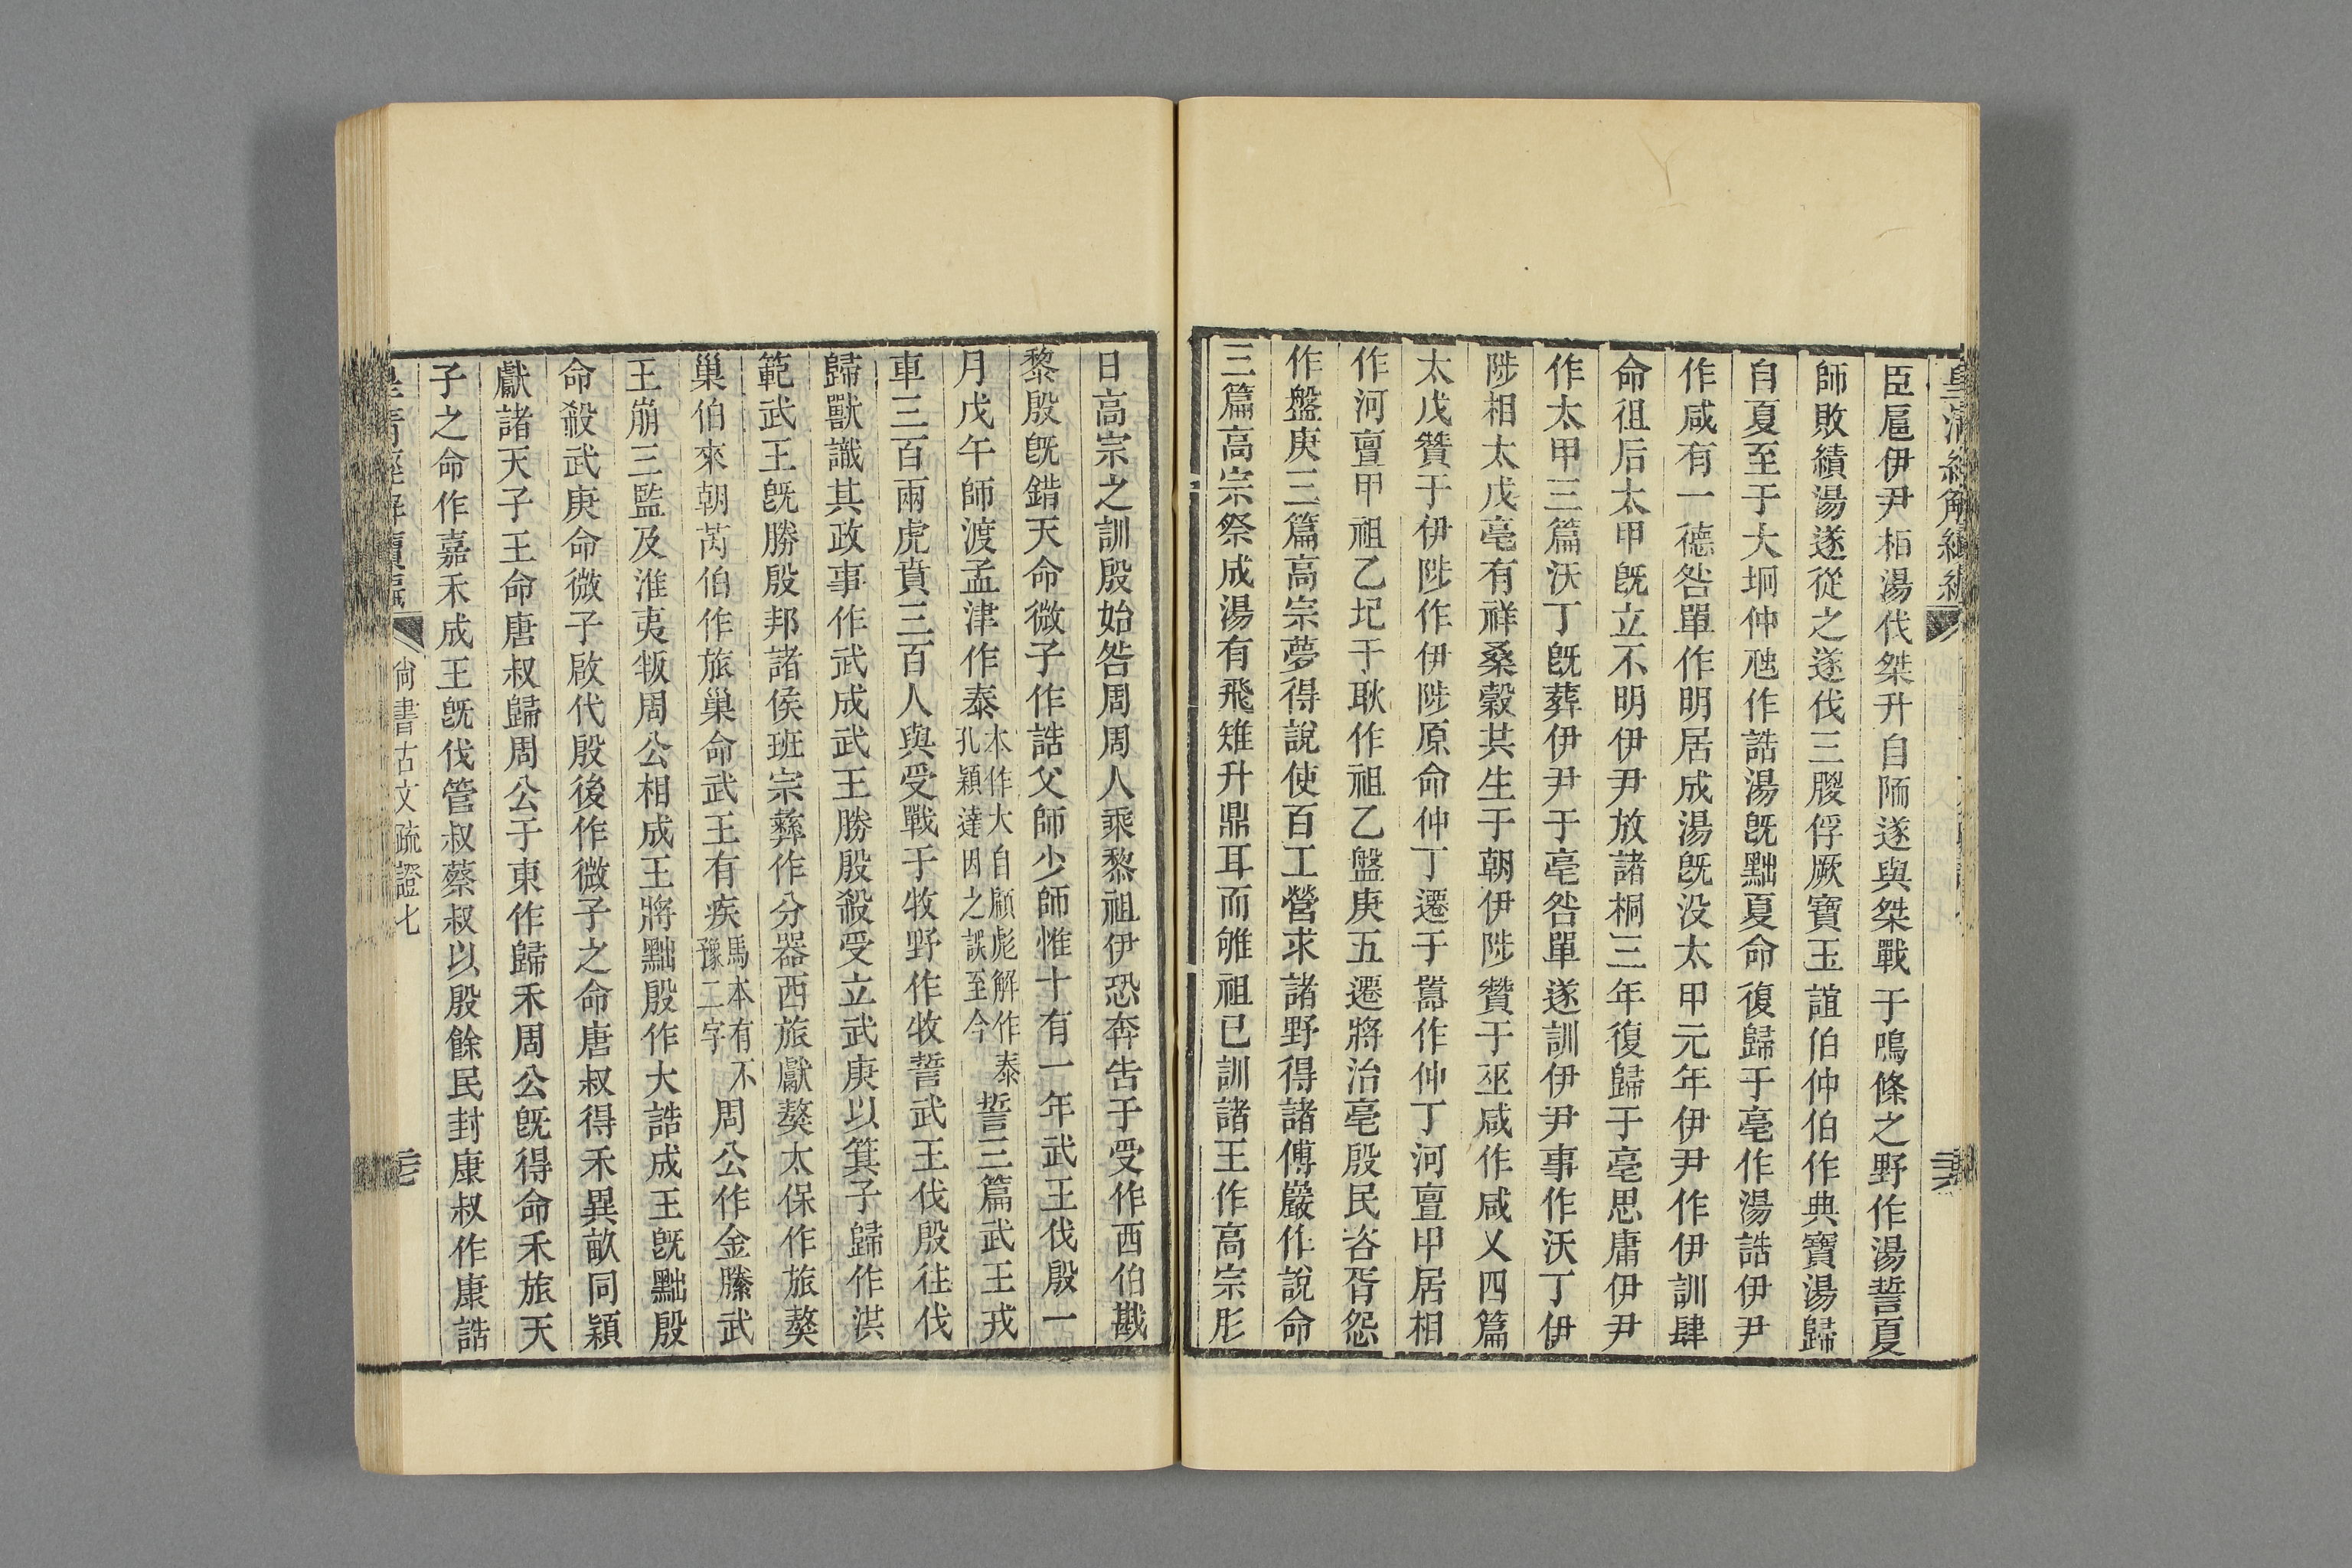 臣扈伊尹相湯伐桀升自陑遂與桀戰于鳴條之野作湯誓夏
師敗績湯遂從之遂伐三朡俘厥寶玉誼伯仲伯作典寶湯歸
自夏至于大坰仲虺作誥湯旣黜夏命復歸于亳作湯誥伊尹
作咸有一德咎單作明居成湯旣没太甲元年伊尹作伊訓肆
命徂后太甲旣立不明伊尹放諸桐三年復歸于亳思庸伊尹
作太甲三篇沃丁旣葬伊尹于亳咎單遂訓伊尹事作沃丁伊
陟相太戊亳有祥桑榖共生于朝伊陟贊于巫咸作咸乂四篇
太戊贊于伊陟作伊陟原命仲丁遷于囂作仲丁河亶甲居相
作河亶甲祖乙圮于耿作祖乙盤庚五遷將治亳殷民咨胥怨
作盤庚三篇高宗夢得說使百工營求諸野得諸傅巖作說命
三篇高宗祭成湯有飛雉升鼎耳而雊祖已訓諸王作高宗肜
日高宗之訓殷始咎周周人乘黎祖伊恐奔告于受作西伯戡
黎殷旣錯天命微子作誥父師少師惟十有一年武王伐殷一
月戊午師渡孟津作泰本作大自顧彪解作泰孔穎達因之誤至今誓三篇武王戎
車三百兩虎賁三百人與受戰于牧野作牧誓武王伐殷往伐
歸獸識其政事作武成武王勝殷殺受立武庚以箕子歸作洪
範武王旣勝殷邦諸侯班宗彝作分器西旅獻獒太保作旅獒
巢伯來朝芮伯作旅巢命武王有疾馬本有不豫二字周公作金縢武
王崩三監及淮夷叛周公相成王將黜殷作大誥成王旣黜殷
命殺武庚命微子啟代殷後作微子之命唐叔得禾異畝同穎
獻諸天子王命唐叔歸周公于東作歸禾周公旣得命禾旅天
子之命作嘉禾成王旣伐管叔蔡叔以殷餘民封康叔作康誥
尚書古文疏證七